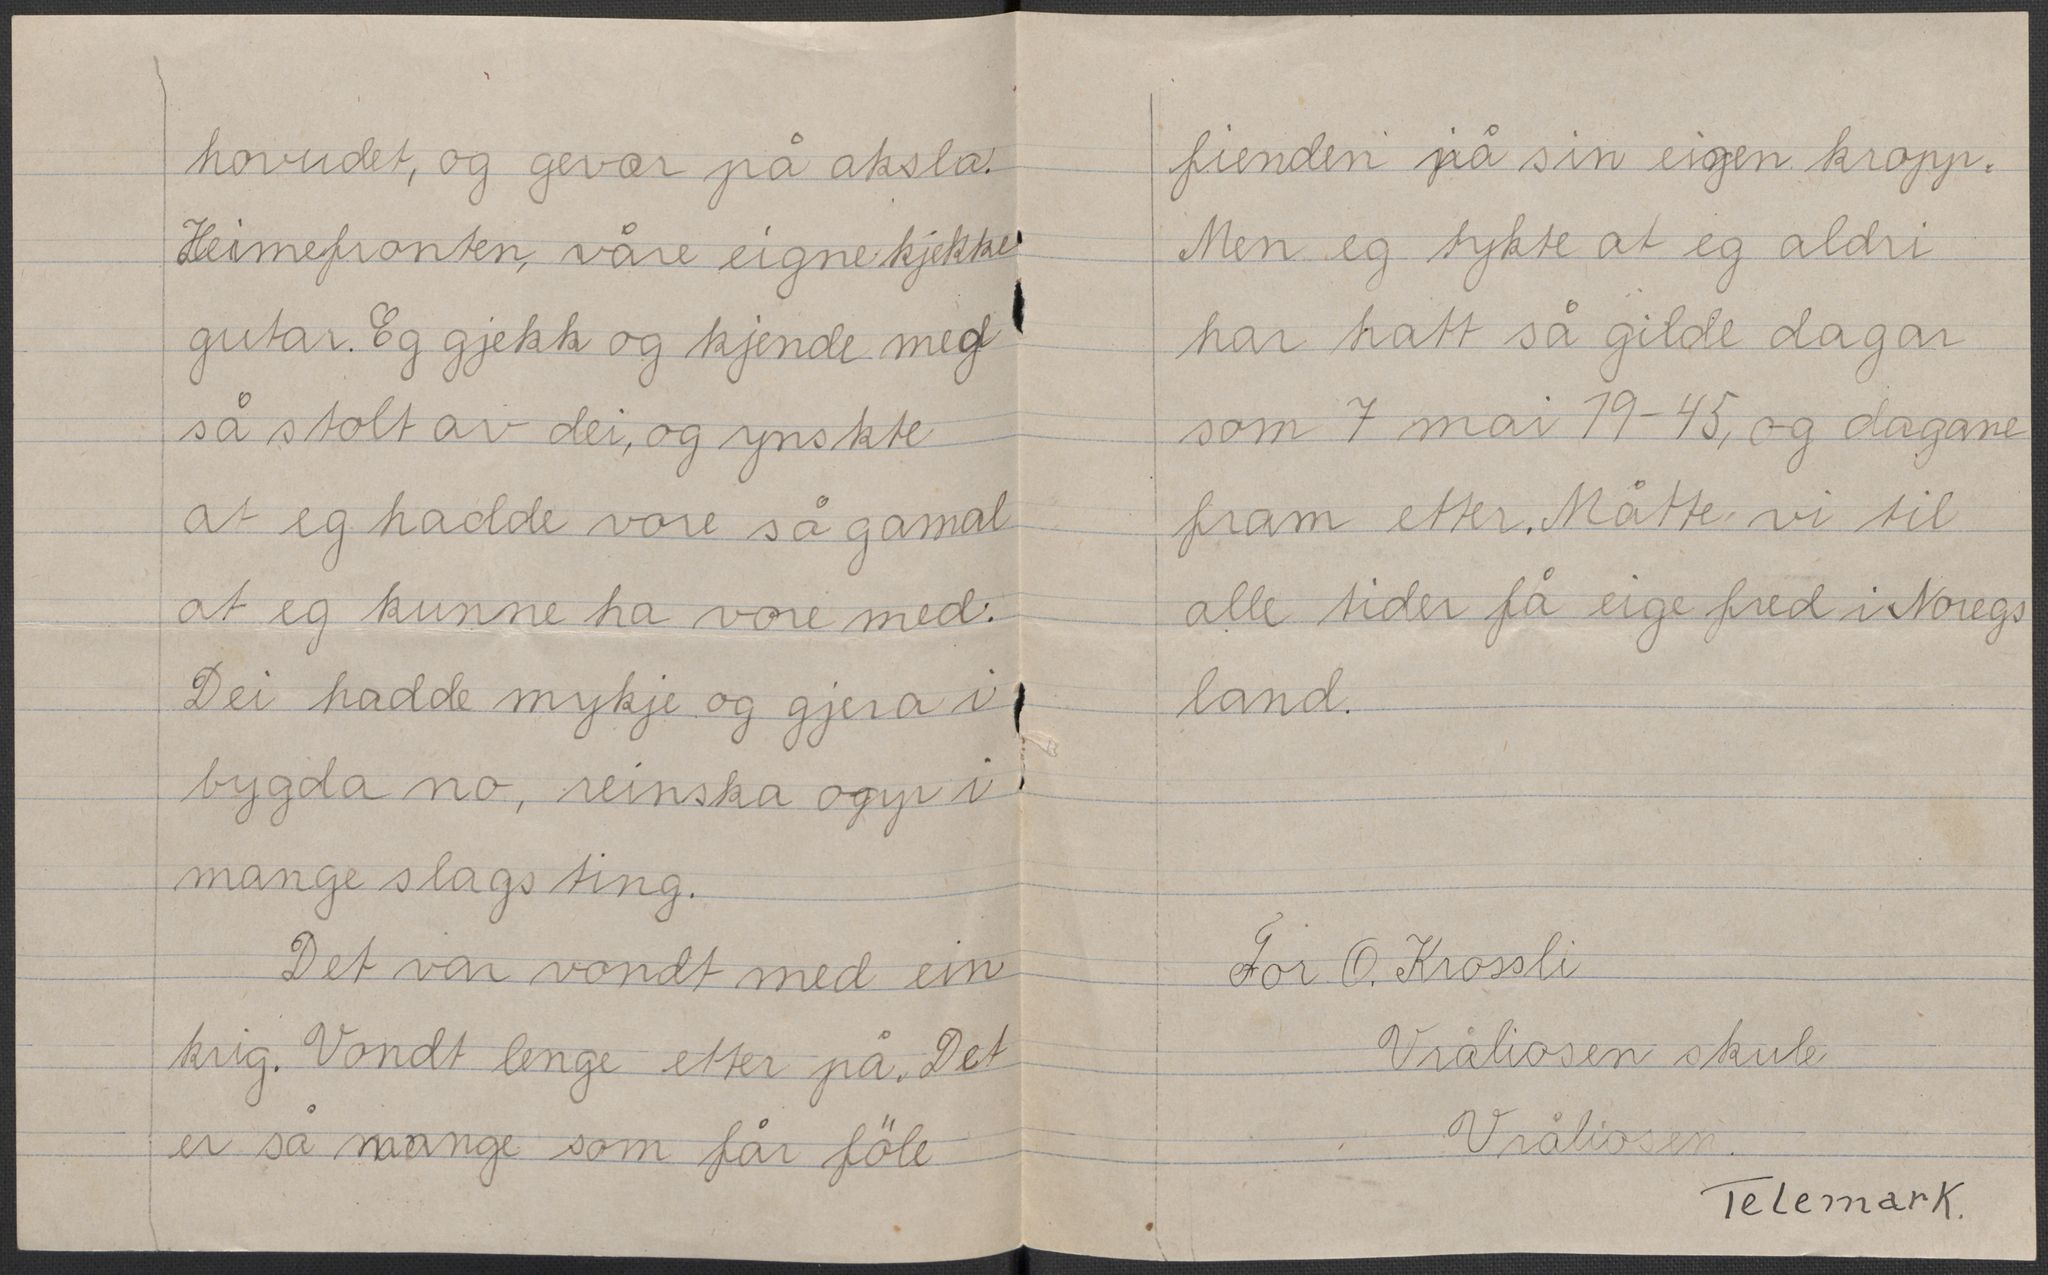 hovudet, og gevær på aksla.
Heimefronten, våre eigne kjekke
gutar. Eg gjekk og kjende meg
så stolt av dei, og ynskte
at eg hadde vore så gamal
at eg kunne ha vore med.
Dei hadde mykje og gjera i
bygda no, reinska opp i
mange slags ting.
Det var vondt med ein
krig. Vondt lenge etter på. Det
er så mange som får föle
fienden på sin eigen kropp.
Men eg tykte at eg aldri
har hatt så gilde dagar
som 7 mai 19-45, og dagane
fram etter. Måtte vi til
alle tider få eige fred i Noregs
land.
For O. Krossli
Vråliosen skule
Vråliosen.
Telemark.